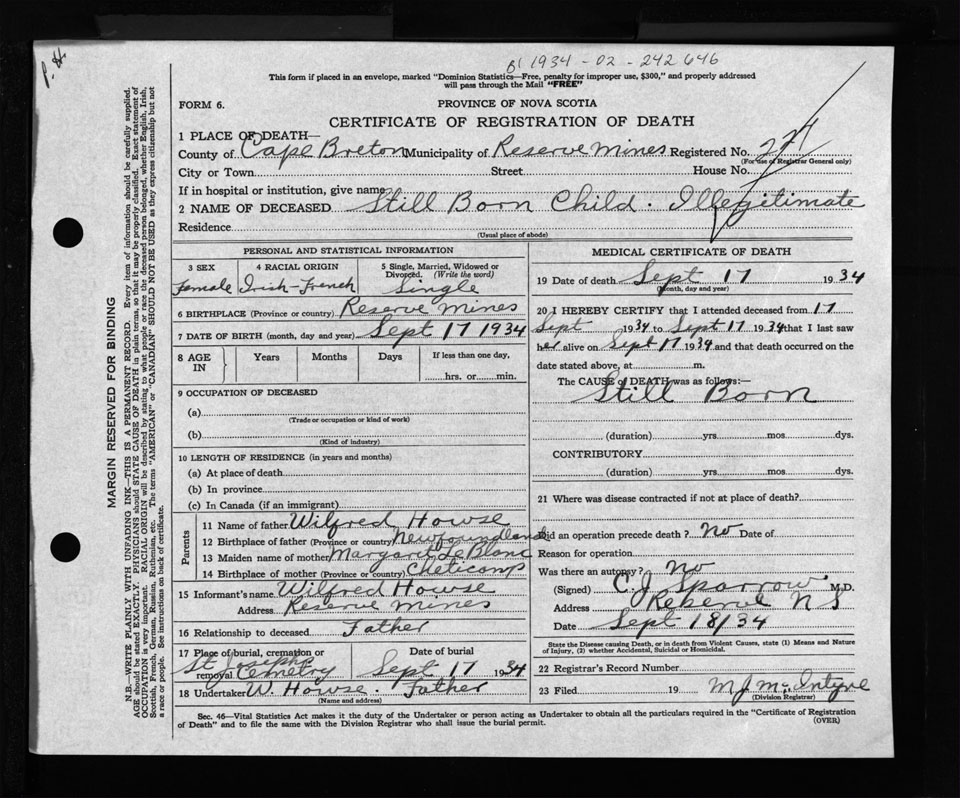 P. H.
B' 1934 - 02 - 242646
This form if placed in an envelope, marked "Dominion Statistics—Free, penalty for improper use, $300," and properly addressed
will pass through the Mail "FREE"
FORM 6.
PROVINCE OF NOVA SCOTIA
CERTIFICATE OF REGISTRATION OF DEATH
1 PLACE OF DEATH—
County of Cape Breton Municipality of Reserve Mines Registered No.
(For use of Registrar General only)
City or Town Street House No.
If in hospital or institution, give name
2 NAME OF DECEASED Still Born Child. Illegitimate
Residence
(Usual place of abode)
PERSONAL AND STATISTICAL INFORMATION
3 SEX 4 RACIAL ORIGIN 5 Single, Married, Widowed or
Divorced. (Write the word)
Female Irish-French Single
6 BIRTHPLACE (Province or country) Reserve Mines
7 DATE OF BIRTH (month, day and year) Sept 17 1934
8 AGE IN Years Months Days If less than one day,
hrs. or min.
9 OCCUPATION OF DECEASED
(a)
(Trade or occupation or kind of work)
(b)
(Kind of industry)
10 LENGTH OF RESIDENCE (in years and months)
(a) At place of death
(b) In province
(c) In Canada (if an immigrant)
Parents
11 Name of father Wilfred Howse
12 Birthplace of father (Province or country) Newfoundland
13 Maiden name of mother Margaret LeBlanc
14 Birthplace of mother (Province or country) Cheticamp
15 Informant's name Wilfred Howse
Address Reserve Mines
16 Relationship to deceased Father
17 Place of burial, cremation or removal Date of burial
St Josephs Cemetry Sept 17 1934
18 Undertaker W. Howse. Father
(Name and address)
MEDICAL CERTIFICATE OF DEATH
19 Date of death Sept 17 1934
(Month, day and year)
20 I HEREBY CERTIFY that I attended deceased from 17
Sept 1934 to Sept 17 1934 that I last saw
her alive on Sept 17 1934 and that death occurred on the
date stated above, at m.
The CAUSE of DEATH was as follows:—
Still Born
(duration) yrs. mos dys.
CONTRIBUTORY
(duration) yrs. mos. dys.
21 Where was disease contracted if not at place of death?
Did an operation precede death? No Date of
Reason for operation
Was there an autopsy? No
(Signed) C. J. Sparrow M.D.
Address Reserve N S
Date Sept 18/34
State the Disease causing Death, or in death from Violent Causes, state (1) Means and Nature
of Injury, (2) whether Accidental, Suicidal or Homicidal.
22 Registrar's Record Number
23 Filed 19 M J McIntyre
(Division Registrar)
Sec. 46—Vital Statistics Act makes it the duty of the Undertaker or person acting as Undertaker to obtain all the particulars required in the "Certificate of Registration
of Death" and to file the same with the Division Registrar who shall issue the burial permit. (OVER)
MARGIN RESERVED FOR BINDING
N.B.—WRITE PLAINLY WITH UNFADING INK—THIS IS A PERMANENT RECORD. Every item of information should be carefully supplied.
AGE should be stated EXACTLY. PHYSICIANS should STATE CAUSE OF DEATH in plain terms, so that it may be properly classified. Exact statement of
OCCUPATION is very important. RACIAL ORIGIN will be described by stating to what people or race the deceased person belonged, whether English, Irish,
Scottish, French, German, Russian, Ruthenian, etc. The terms "AMERICAN" or "CANADIAN" SHOULD NOT BE USED as they express citizenship but not
a race or people. See instructions on back of certificate.